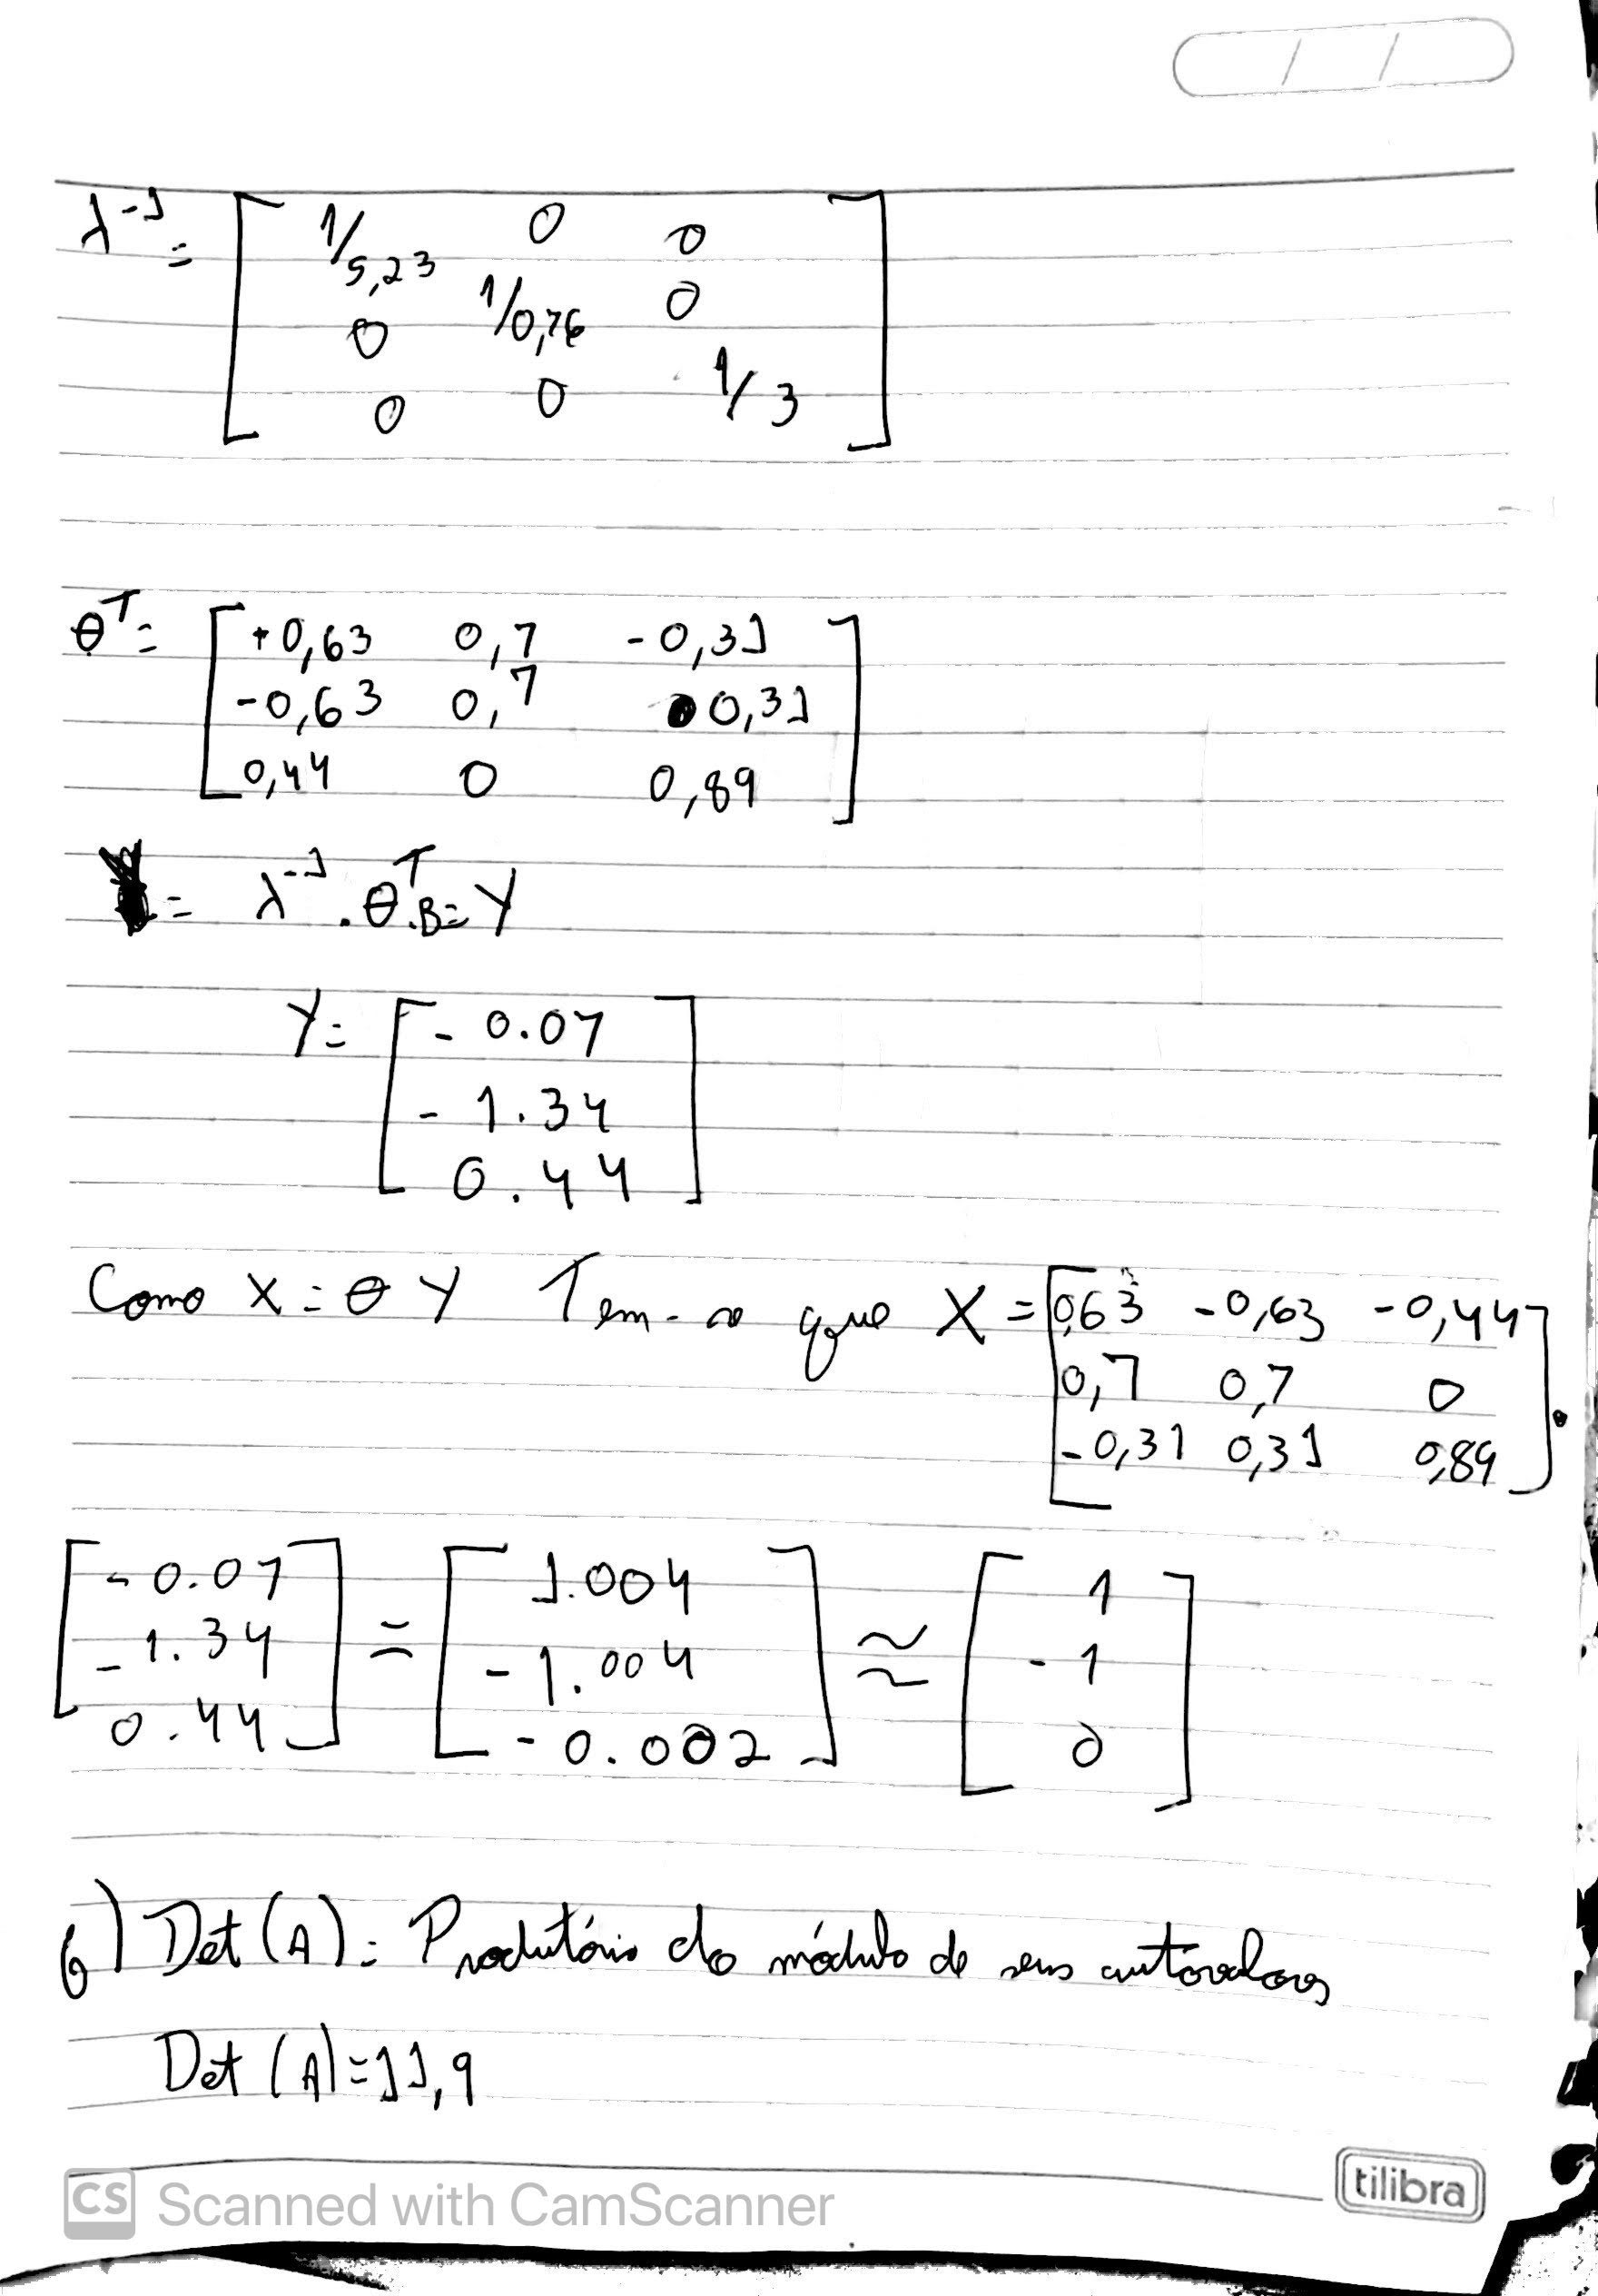 / /
λ⁻¹ = [ 1/5,23 0 0
0 1/0,76 0
0 0 1/3 ]
θᵀ = [ +0,63 0,7 -0,31
-0,63 0,7 0,31
0,44 0 0,89 ]
= λ⁻¹ . θᵀ.B = Y
Y = [ - 0.07
- 1.34
0.44 ]
Como X = θ Y Tem-se que X = [ 0,63 -0,63 -0,44
0,7 0,7 0
-0,31 0,31 0,89 ] .
[ - 0.07
- 1.34
0.44 ] = [ 1.004
- 1.004
- 0.002 ] ≈ [ 1
- 1
0 ]
6) Det (A) = Produtório do módulo de seus autovalores
Det (A) = 11,9
tilibra
CS Scanned with CamScanner